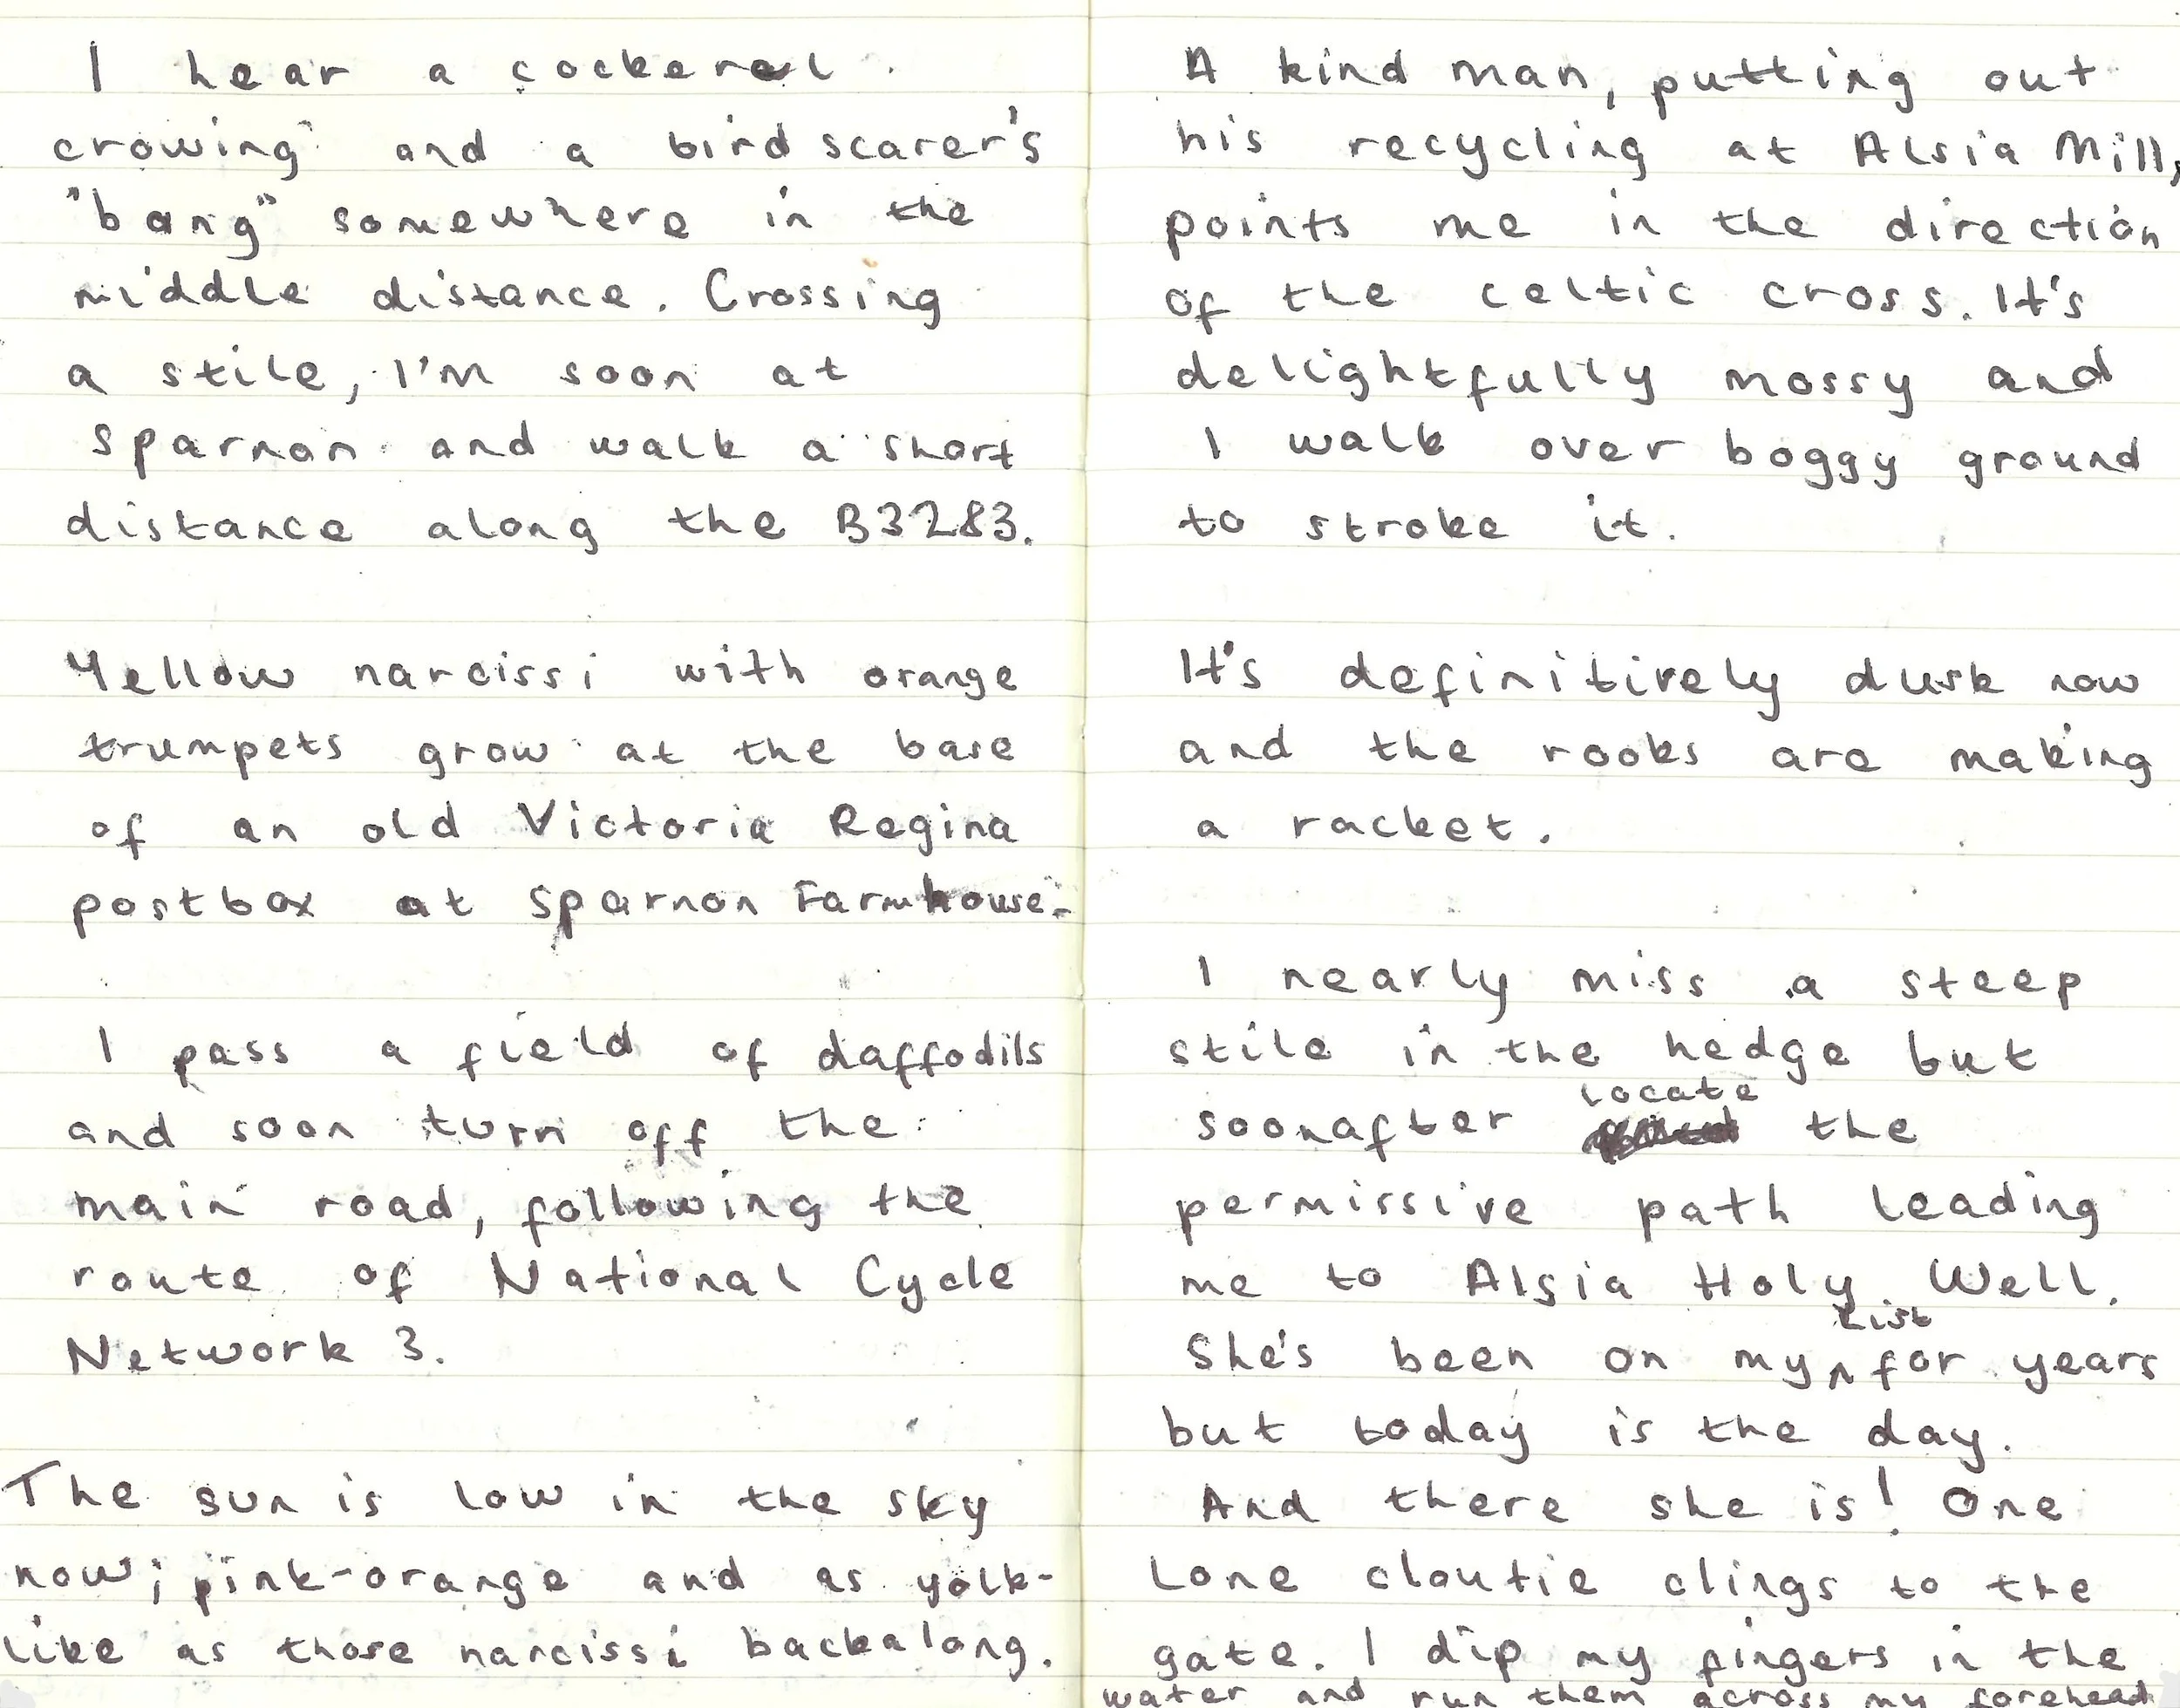 I hear a cockerel
crowing and a bird scarer's
"bang" somewhere in the
middle distance. Crossing
a stile, I'm soon at
Sparnon and walk a short
distance along the B3283.
Yellow narcissi with orange
trumpets grow at the base
of an old Victoria Regina
postbox at Sparnon Farmhouse.
I pass a field of daffodils
and soon turn off the
main road, following the
route of National Cycle
Network 3.
The sun is low in the sky
now; pink-orange and as yolk-
like as those narcissi backalong.
A kind man, putting out
his recycling at Alsia Mill,
points me in the direction
of the celtic cross. It's
delightfully mossy and
I walk over boggy ground
to stroke it.
It's definitively dusk now
and the rooks are making
a racket.
I nearly miss a steep
stile in the hedge but
locate
soonafter the
permissive path leading
me to Alsia Holy Well.
list
She's been on my ^ for years
but today is the day.
And there she is! One
lone cloutie clings to the
gate. I dip my fingers in the
water and run them across my forehead